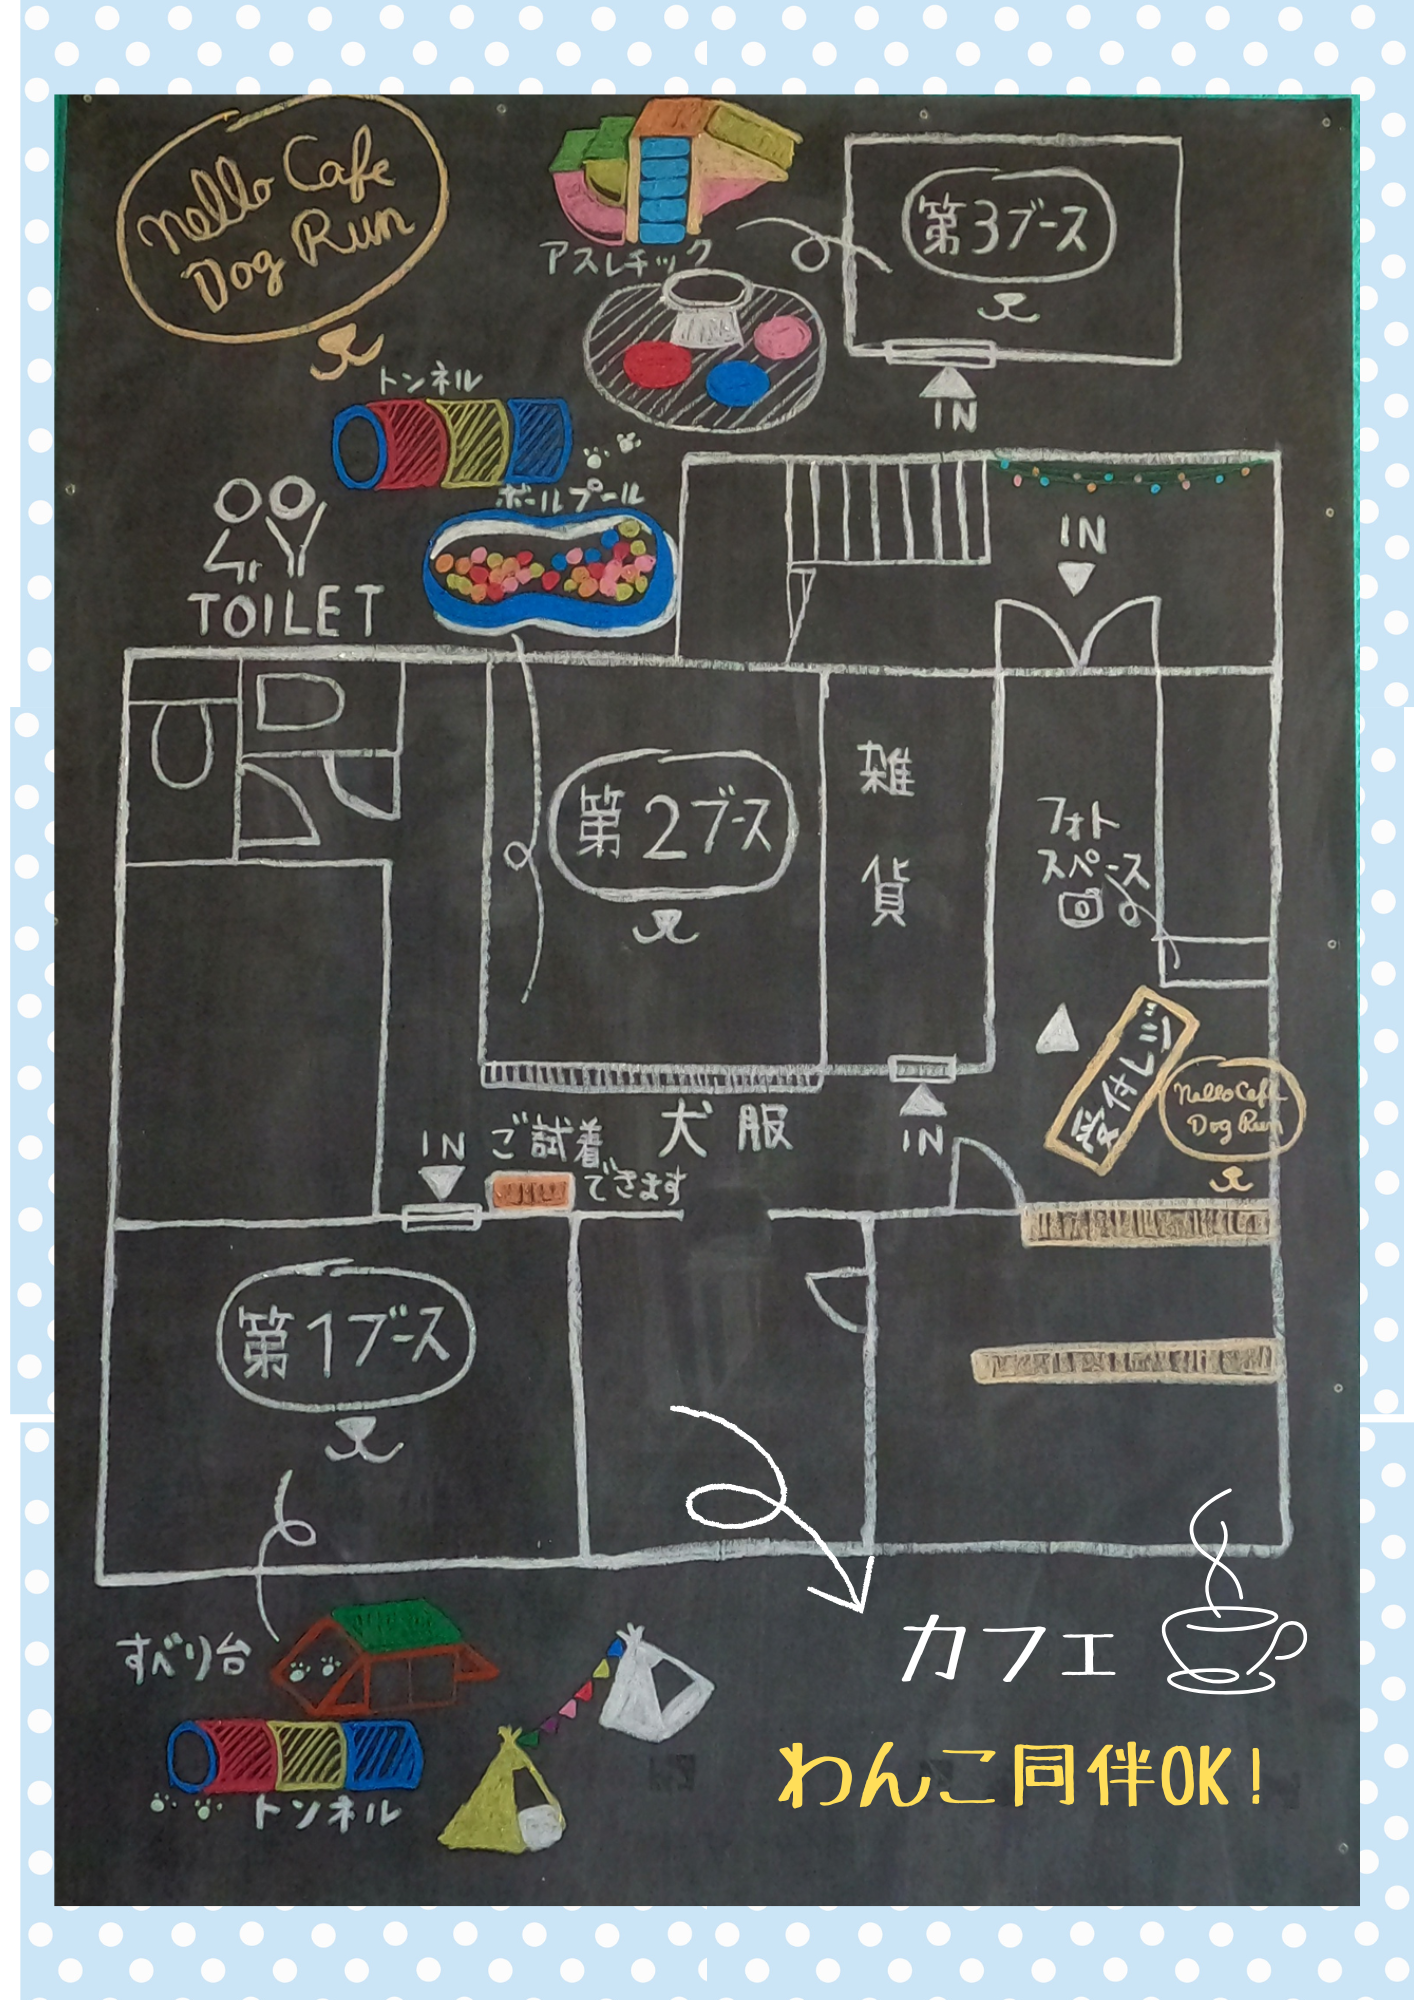 Nello Cafe
Dog Run
アスレチック
第3ブース
IN
トンネル
ボールプール
TOILET
IN
第2ブース
雑貨
フォト
スペース
受付レジ
Nello Cafe
Dog Run
犬服
IN
IN
ご試着
できます
第1ブース
すべり台
トンネル
カフェ
わんこ同伴OK!